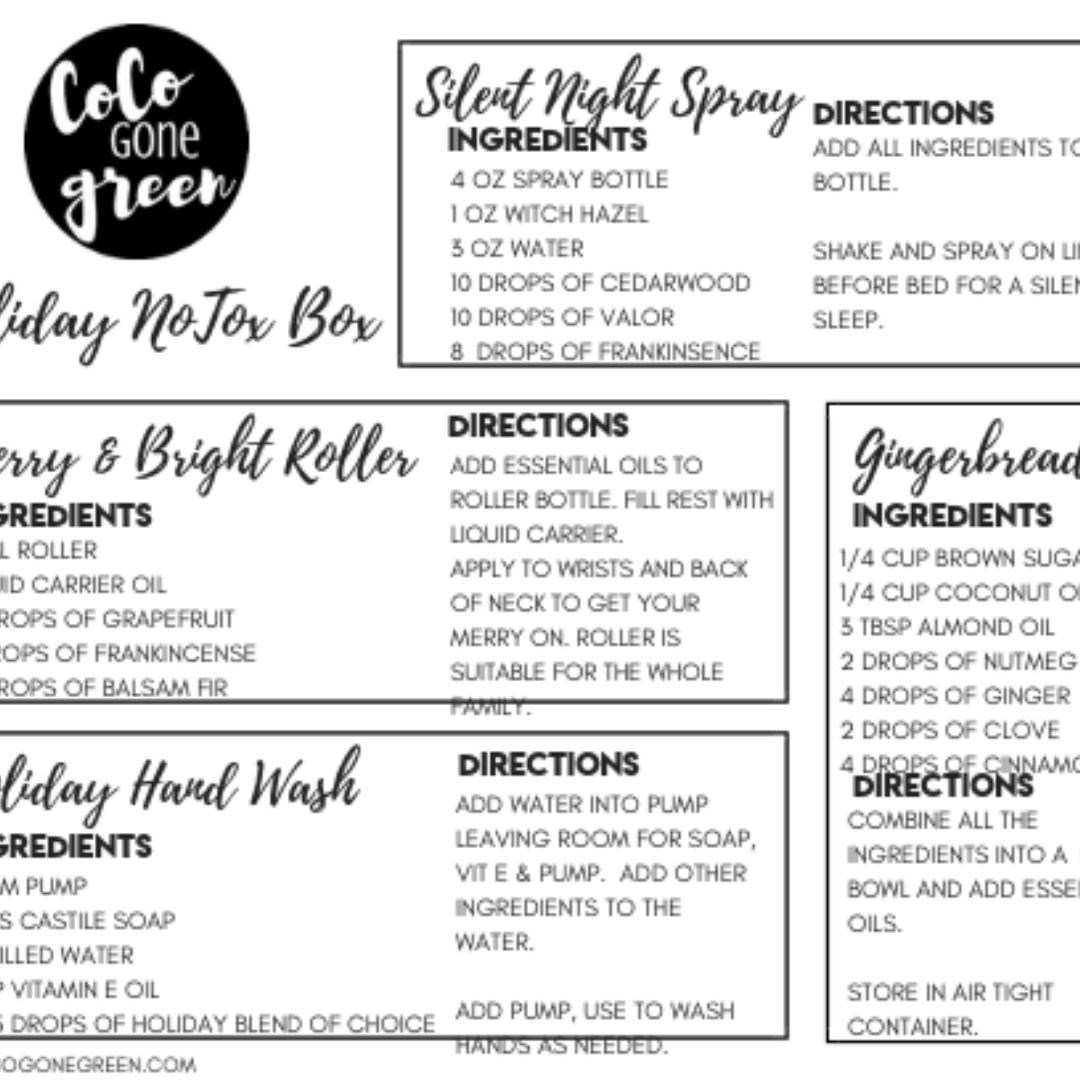 CoCo
GONE
green
liday NoTox Box
Silent Night Spray
INGREDIENTS
4 OZ SPRAY BOTTLE
1 OZ WITCH HAZEL
3 OZ WATER
10 DROPS OF CEDARWOOD
10 DROPS OF VALOR
8 DROPS OF FRANKINSENCE
DIRECTIONS
ADD ALL INGREDIENTS TO
BOTTLE.
SHAKE AND SPRAY ON LI
BEFORE BED FOR A SILEN
SLEEP.
erry & Bright Roller
GREDIENTS
L ROLLER
UID CARRIER OIL
ROPS OF GRAPEFRUIT
ROPS OF FRANKINCENSE
ROPS OF BALSAM FIR
DIRECTIONS
ADD ESSENTIAL OILS TO
ROLLER BOTTLE. FILL REST WITH
LIQUID CARRIER.
APPLY TO WRISTS AND BACK
OF NECK TO GET YOUR
MERRY ON. ROLLER IS
SUITABLE FOR THE WHOLE
FAMILY.
Gingerbread
INGREDIENTS
1/4 CUP BROWN SUGA
1/4 CUP COCONUT OI
3 TBSP ALMOND OIL
2 DROPS OF NUTMEG
4 DROPS OF GINGER
2 DROPS OF CLOVE
4 DROPS OF CINNAMO
DIRECTIONS
COMBINE ALL THE
INGREDIENTS INTO A
BOWL AND ADD ESSE
OILS.
STORE IN AIR TIGHT
CONTAINER.
liday Hand Wash
GREDIENTS
M PUMP
S CASTILE SOAP
ILLED WATER
P VITAMIN E OIL
5 DROPS OF HOLIDAY BLEND OF CHOICE
DIRECTIONS
ADD WATER INTO PUMP
LEAVING ROOM FOR SOAP,
VIT E & PUMP. ADD OTHER
INGREDIENTS TO THE
WATER.
ADD PUMP, USE TO WASH
HANDS AS NEEDED.
OGONEGREEN.COM